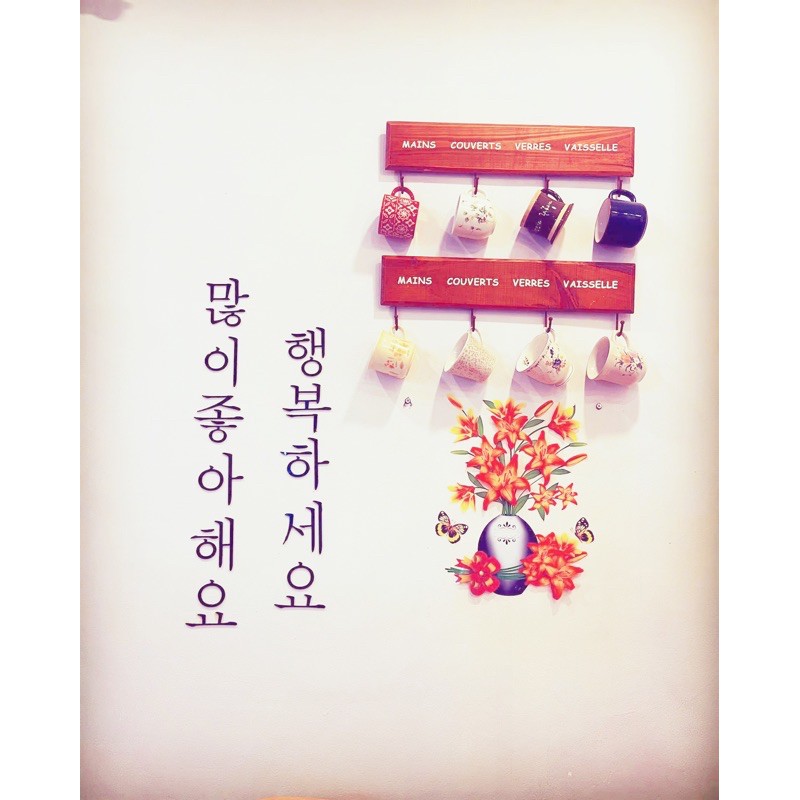 많이좋아해요
행복하세요
MAINS COUVERTS VERRES VAISSELLE
MAINS COUVERTS VERRES VAISSELLE